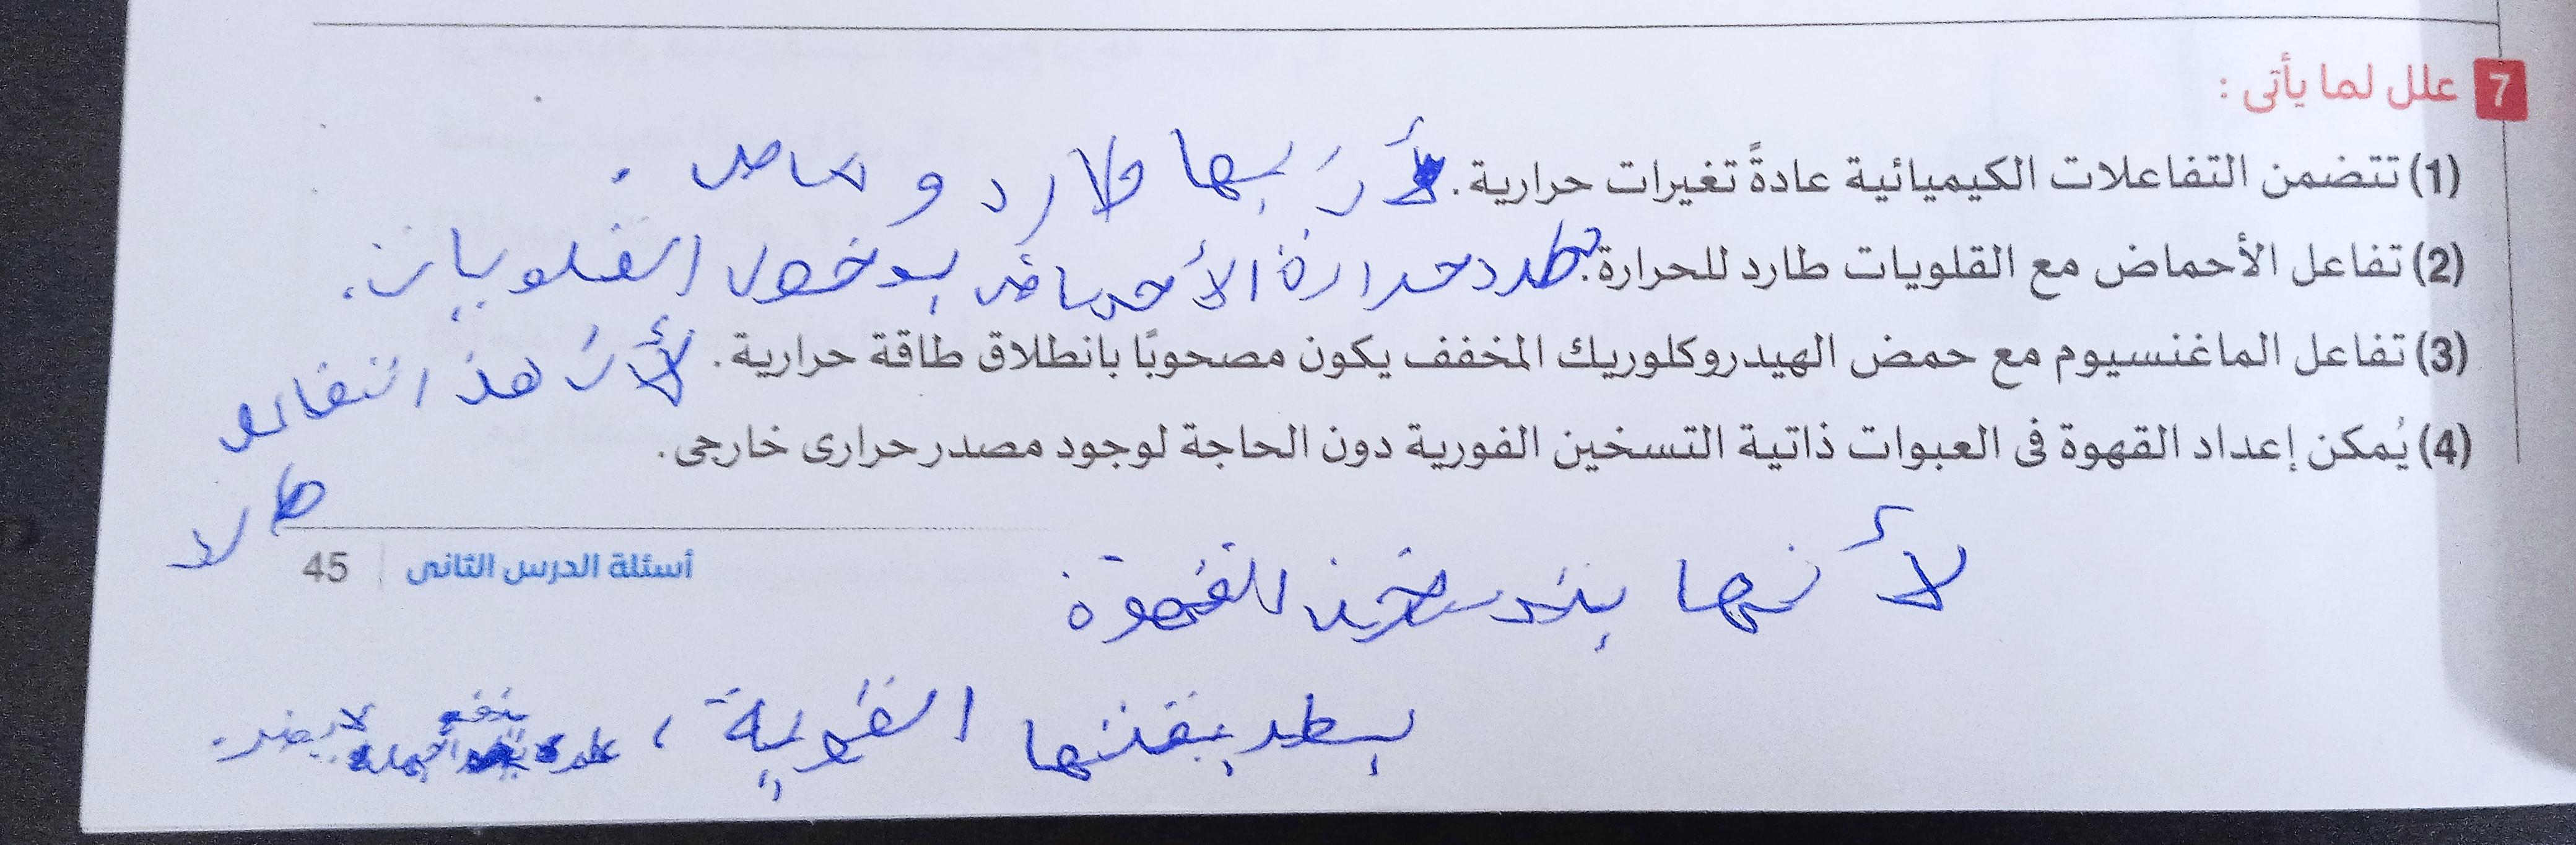 7 علل لما يأتى :
(1) تتضمن التفاعلات الكيميائية عادةً تغيرات حرارية. لأن بها طارد و ماص .
(2) تفاعل الأحماض مع القلويات طارد للحرارة. حرارة الأحماض بدخول القلويات .
(3) تفاعل الماغنسيوم مع حمض الهيدروكلوريك المخفف يكون مصحوبًا بانطلاق طاقة حرارية. لأن هذ التفاعل
(4) يُمكن إعداد القهوة فى العبوات ذاتية التسخين الفورية دون الحاجة لوجود مصدر حرارى خارجى.
45 | أسئلة الدرس الثانى
لأنها للقهوة
بطريقتها الفورية ،